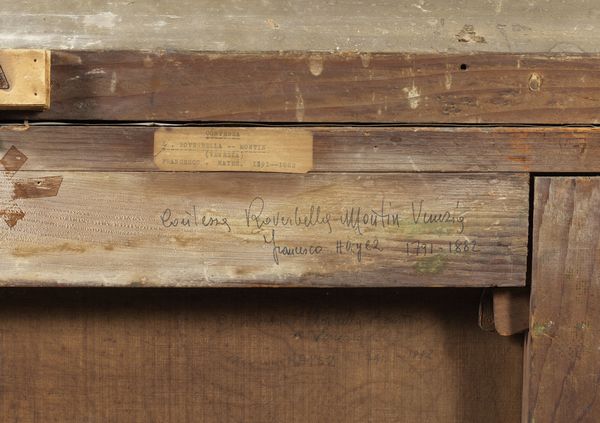 CONTESSA
ROVERBELLA -- MONTIN
(VENEZIA)
FRANCESCO . HAYEZ. 1791--1882
Contessa Roverbella Montin Venezia
Francesco Hayez 1791-1882
HAYEZ